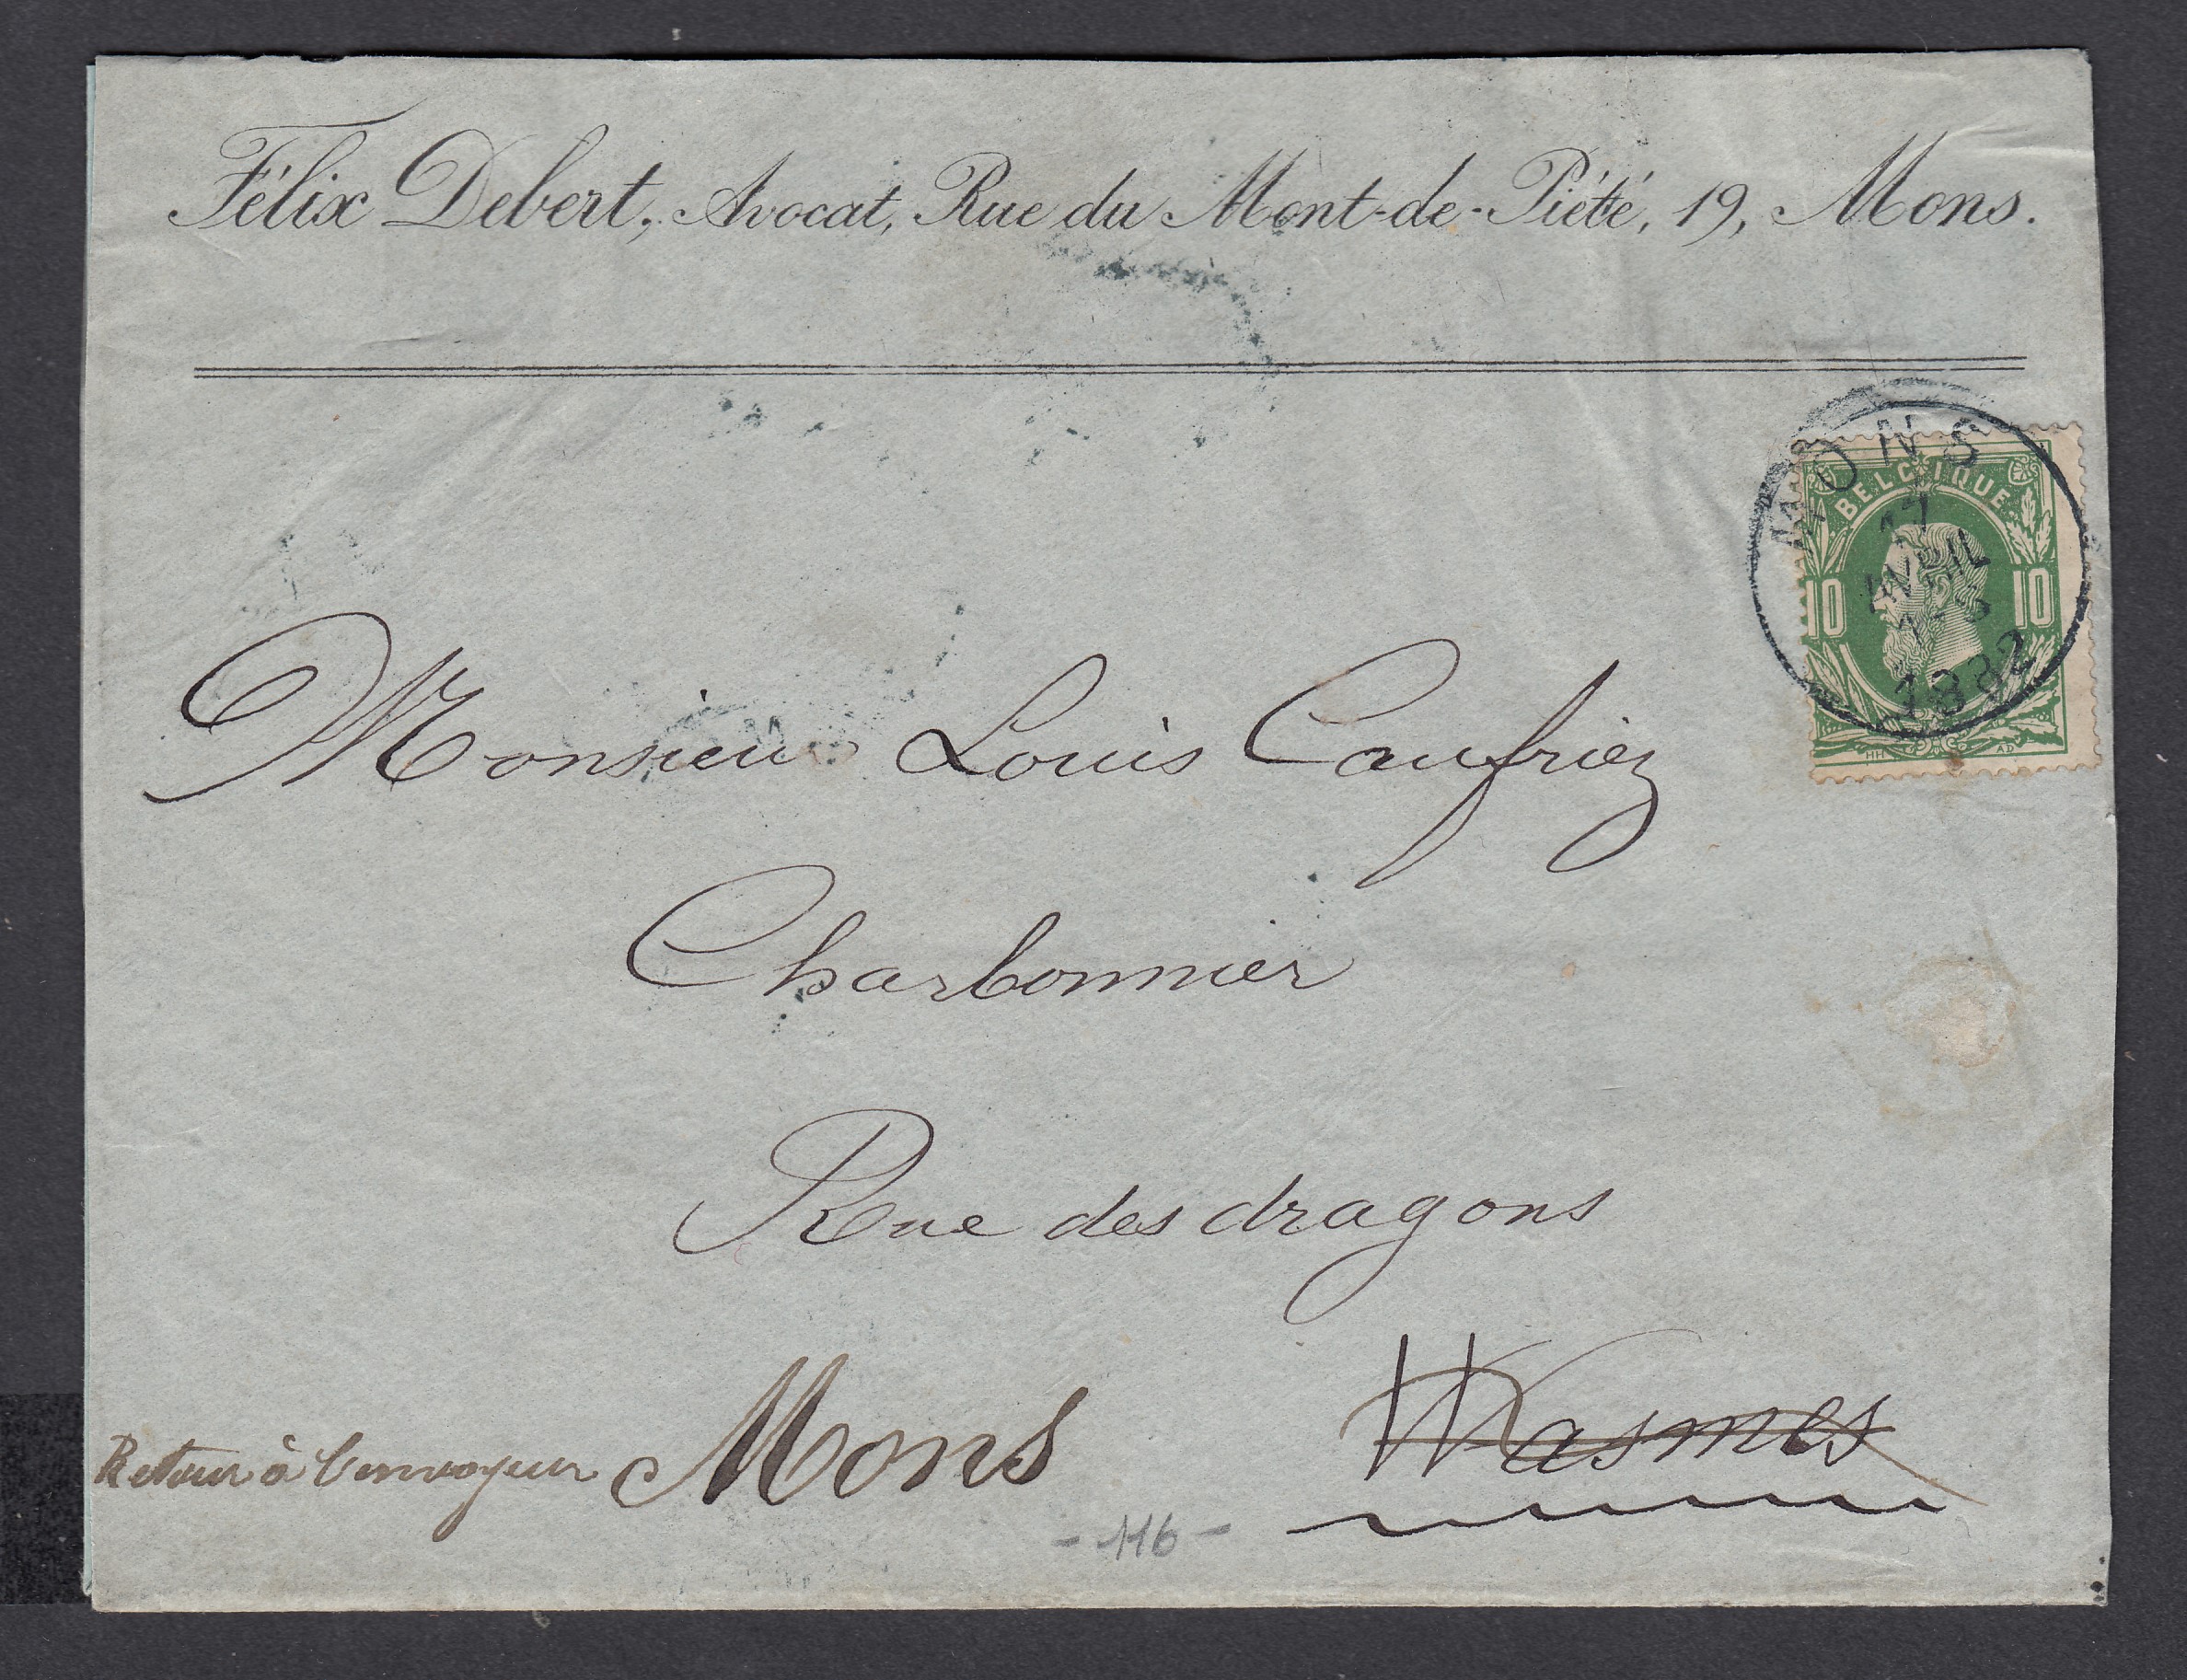 Félix Debert, Avocat, Rue du Mont-de-Piété, 19, Mons.
MONS
17
AVRIL
1882
BELGIQUE
10 10
HH AD
Monsieur Louis Caufriez
Charbonnier
Rue des dragons
Wasmes
Retour à l'envoyeur Mons
- 116 -